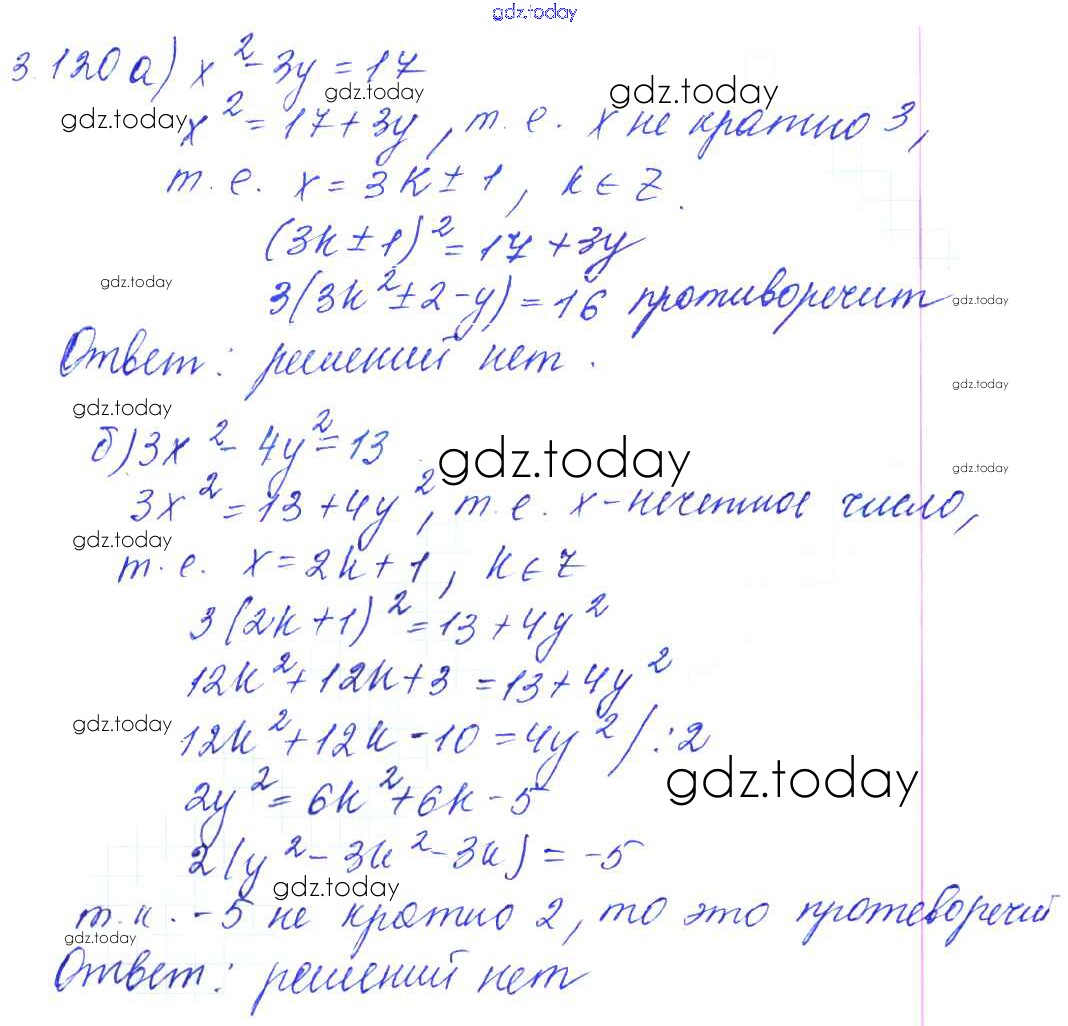 gdz.today
3.120 а) x² - 3y = 17
gdz.today gdz.today
gdz.today x² = 17 + 3y, т. е. x не кратно 3,
т. е. x = 3k ± 1, k ∈ Z.
(3k ± 1)² = 17 + 3y
gdz.today 3(3k² ± 2 - y) = 16 противоречит gdz.today
Ответ: решений нет.
gdz.today
gdz.today
б) 3x² - 4y² = 13 gdz.today gdz.today
3x² = 13 + 4y², т. е. x - нечетное число,
gdz.today
т. е. x = 2k + 1, k ∈ Z
3(2k + 1)² = 13 + 4y²
12k² + 12k + 3 = 13 + 4y²
gdz.today 12k² + 12k - 10 = 4y² / : 2
gdz.today
2y² = 6k² + 6k - 5
2(y² - 3k² - 3k) = -5
gdz.today
т. к. -5 не кратно 2, то это противоречий
gdz.today
Ответ: решений нет